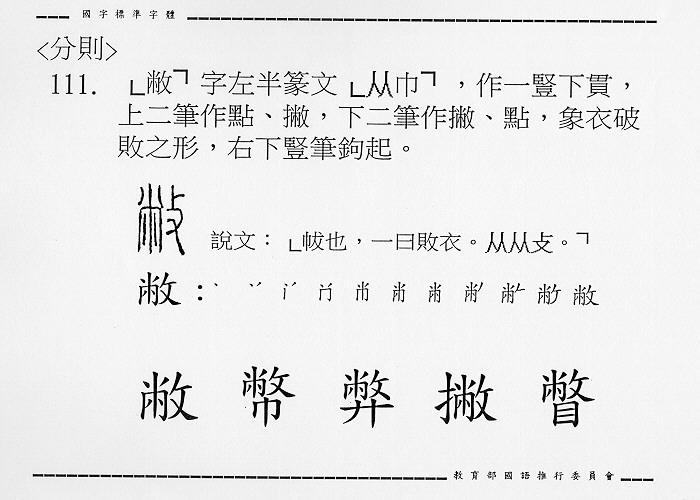 國字標準字體
<分則>
111. 「敝」字左半篆文「㡀」，作一豎下貫，
上二筆作點、撇，下二筆作撇、點，象衣破
敗之形，右下豎筆鉤起。
敝
說文：「帗也，一曰敗衣。从㡀从攴。」
敝：
敝 幣 弊 撇 瞥
教育部國語推行委員會